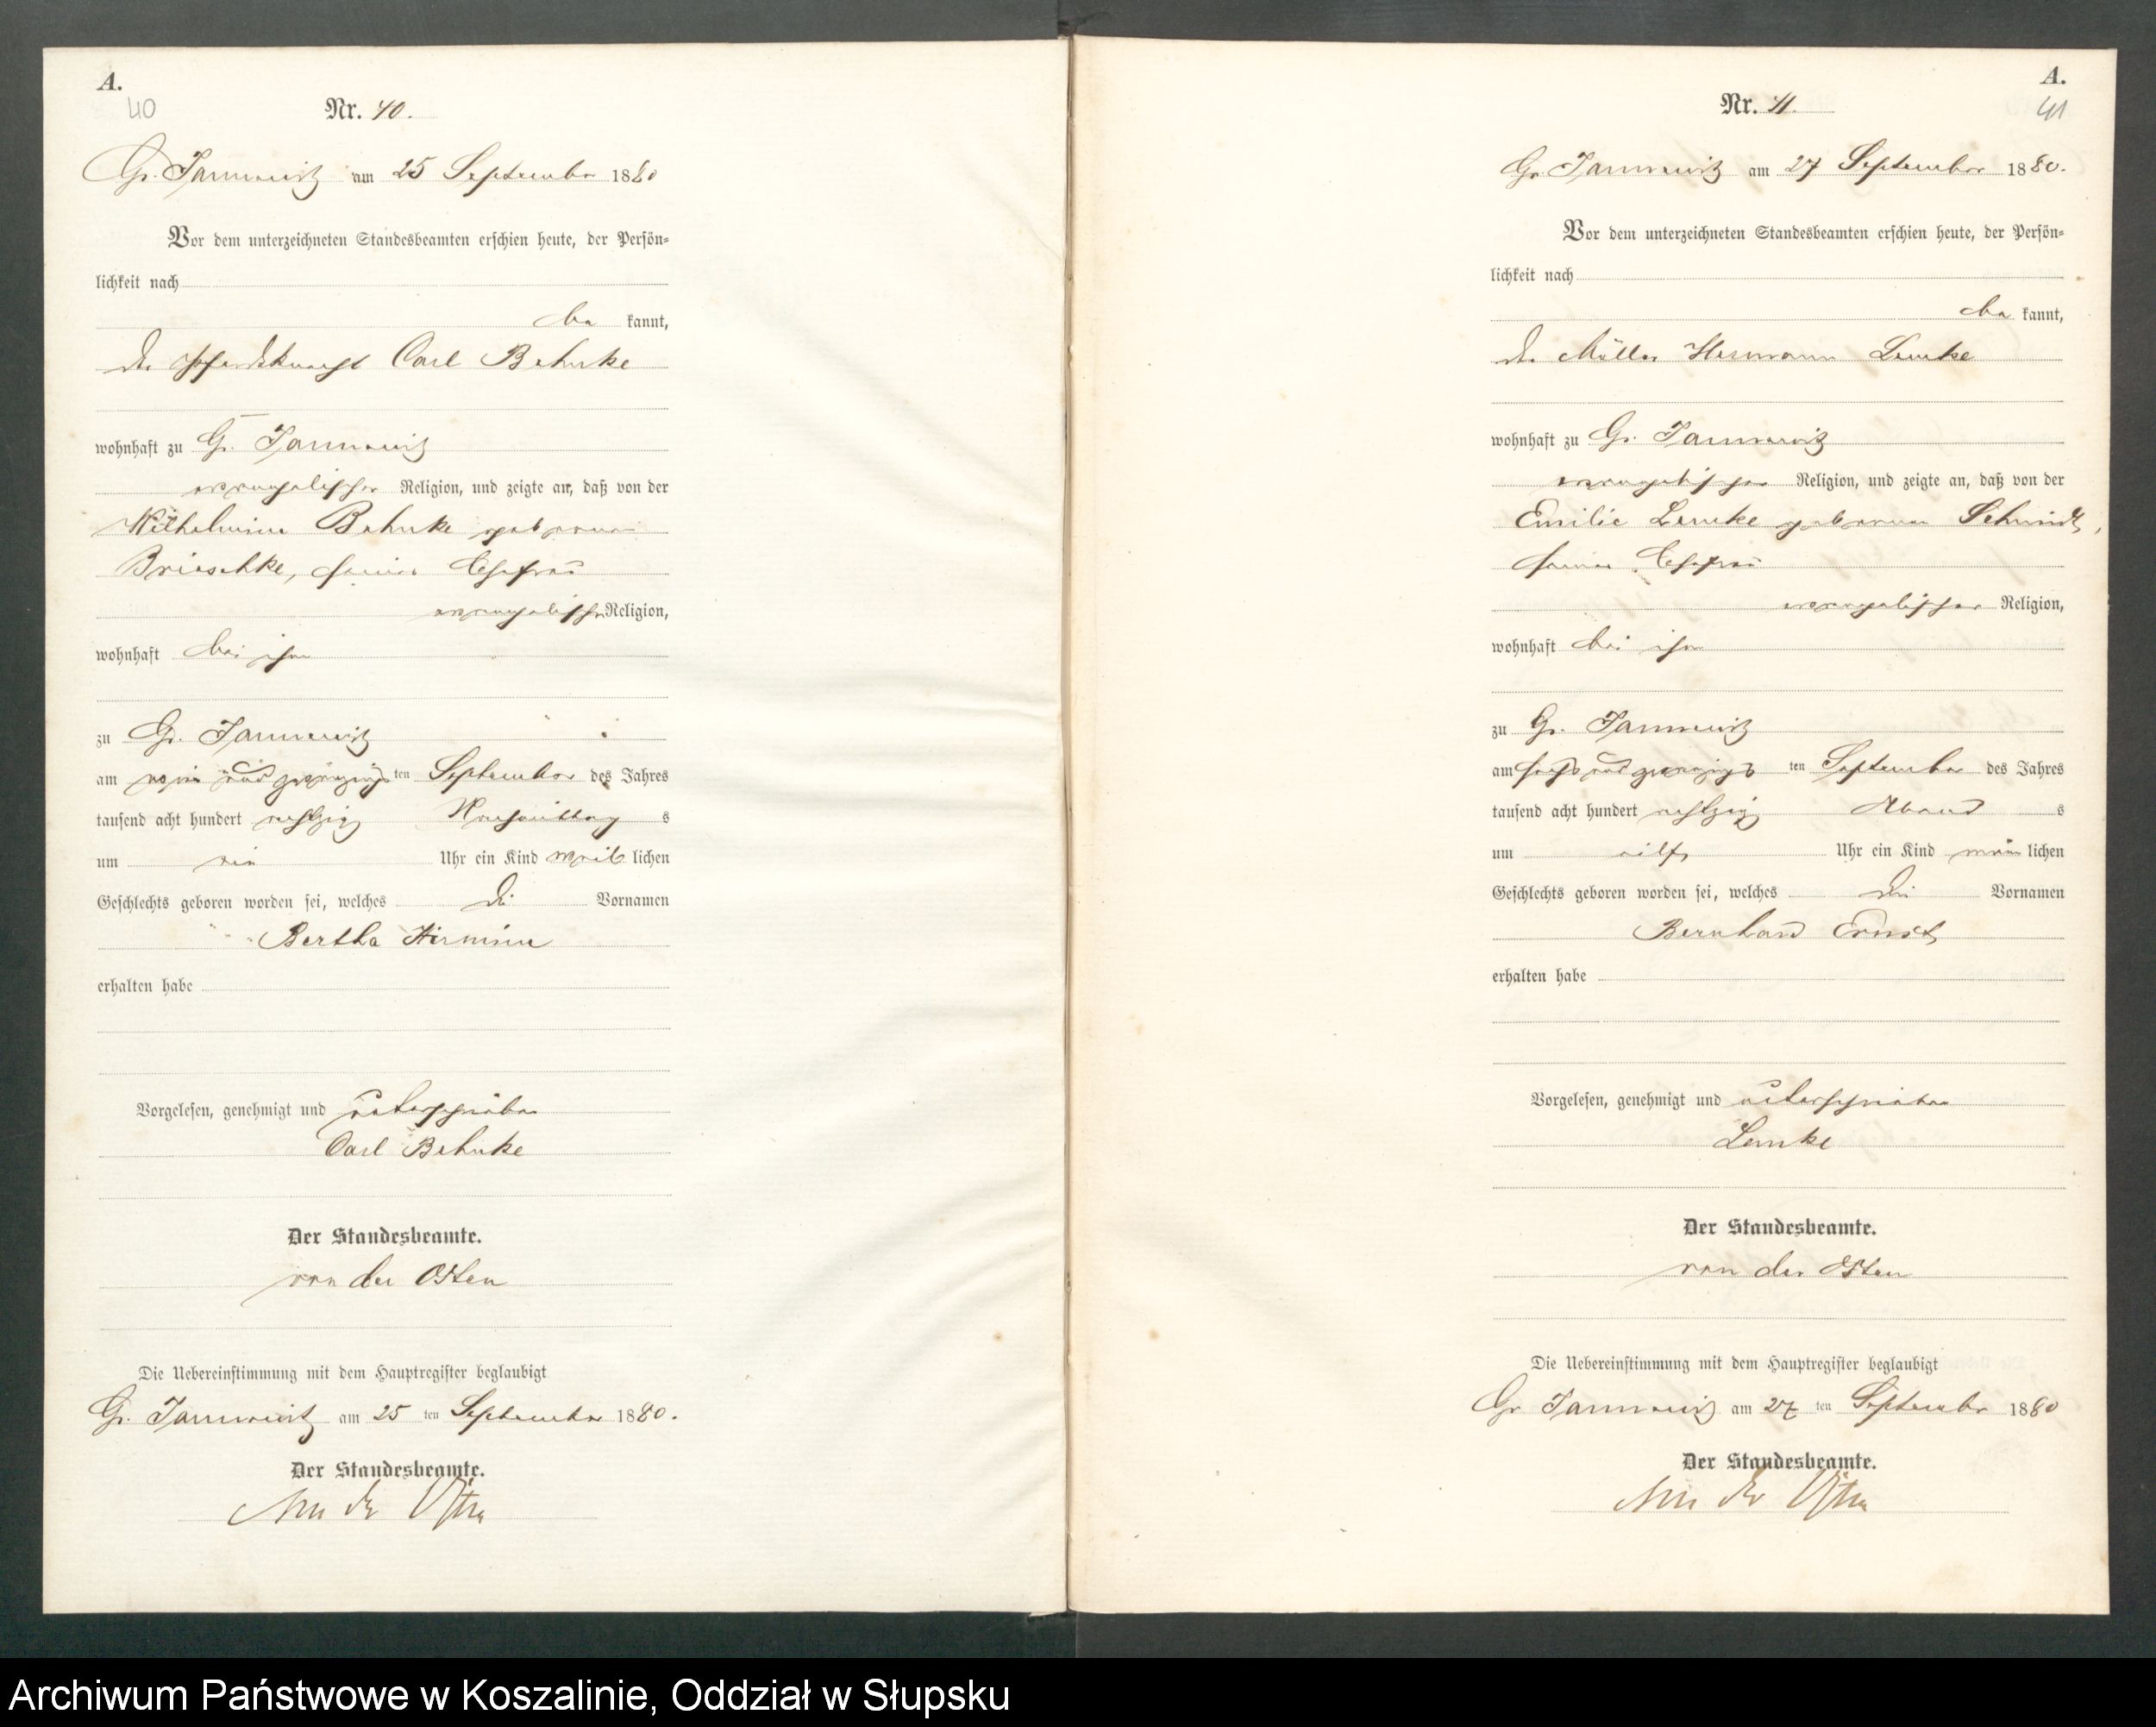 A.
40
Nr. 40.
Gr. Jannewitz am 25 September 1880
Vor dem unterzeichneten Standesbeamten erschien heute, der Persön-
lichkeit nach
be kannt,
der Pferdeknecht Carl Behnke
wohnhaft zu Gr. Jannewitz
evangelischer Religion, und zeigte an, daß von der
Wilhelmine Behnke geborenen
Brieschke, seiner Ehefrau
evangelischer Religion,
wohnhaft bei ihm
zu Gr. Jannewitz
am ein und zwanzigsten September des Jahres
tausend acht hundert achtzig Nachmittag s
um ein Uhr ein Kind weib lichen
Geschlechts geboren worden sei, welches die Vornamen
Bertha Hermine
erhalten habe
Vorgelesen, genehmigt und unterschrieben
Carl Behnke
Der Standesbeamte.
von der Osten
Die Uebereinstimmung mit dem Hauptregister beglaubigt
Gr. Jannewitz am 25 ten September 1880.
Der Standesbeamte.
von der Osten
A.
41
Nr. 41.
Gr. Jannewitz am 27 September 1880.
Vor dem unterzeichneten Standesbeamten erschien heute, der Persön-
lichkeit nach
be kannt,
der Müller Hermann Lemke
wohnhaft zu Gr. Jannewitz
evangelischer Religion, und zeigte an, daß von der
Emilie Lemke geborenen Schmidt,
seiner Ehefrau
evangelischer Religion,
wohnhaft bei ihm
zu Gr. Jannewitz
am sechs und zwanzigs ten September des Jahres
tausend acht hundert achtzig Abend s
um eilf Uhr ein Kind män lichen
Geschlechts geboren worden sei, welches die Vornamen
Bernhard Ernst
erhalten habe
Vorgelesen, genehmigt und unterschrieben
Lemke
Der Standesbeamte.
von der Osten
Die Uebereinstimmung mit dem Hauptregister beglaubigt
Gr Jannewitz am 27 ten September 1880
Der Standesbeamte.
von der Osten
Archiwum Państwowe w Koszalinie, Oddział w Słupsku